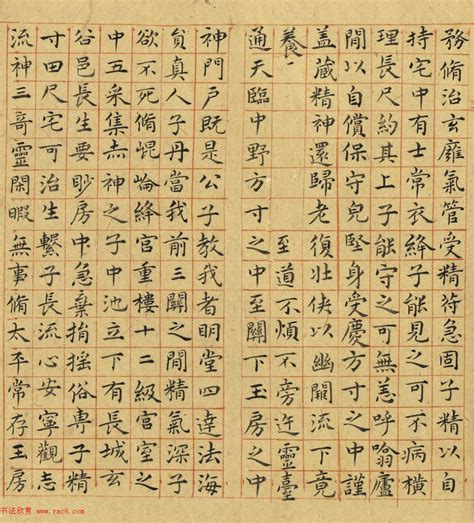 務脩治玄雍氣管受精符急固子精以自
持宅中有士常衣絳子能見之可不病橫
理長尺約其上子能守之可無恙呼噏廬
間以自償保守兒堅身受慶方寸之中謹
盖藏精神還歸老復壯俠以幽闕流下竟
養 至道不煩不旁迕靈臺
通天臨中野方寸之中至闕下玉房之中
神門戶既是公子教我者明堂四達法海
貟真人子丹當我前三關之間精氣深子
欲不死脩崐崘絳宮重樓十二級宮室之
中五采集赤神之子中池立下有長城玄
谷邑長生要眇房中急棄捐搖俗專子精
寸田尺宅可治生繫子長流心安寧觀志
流神三哥靈閑暇無事脩太平常存玉房
书法欣赏 www.yac8.com